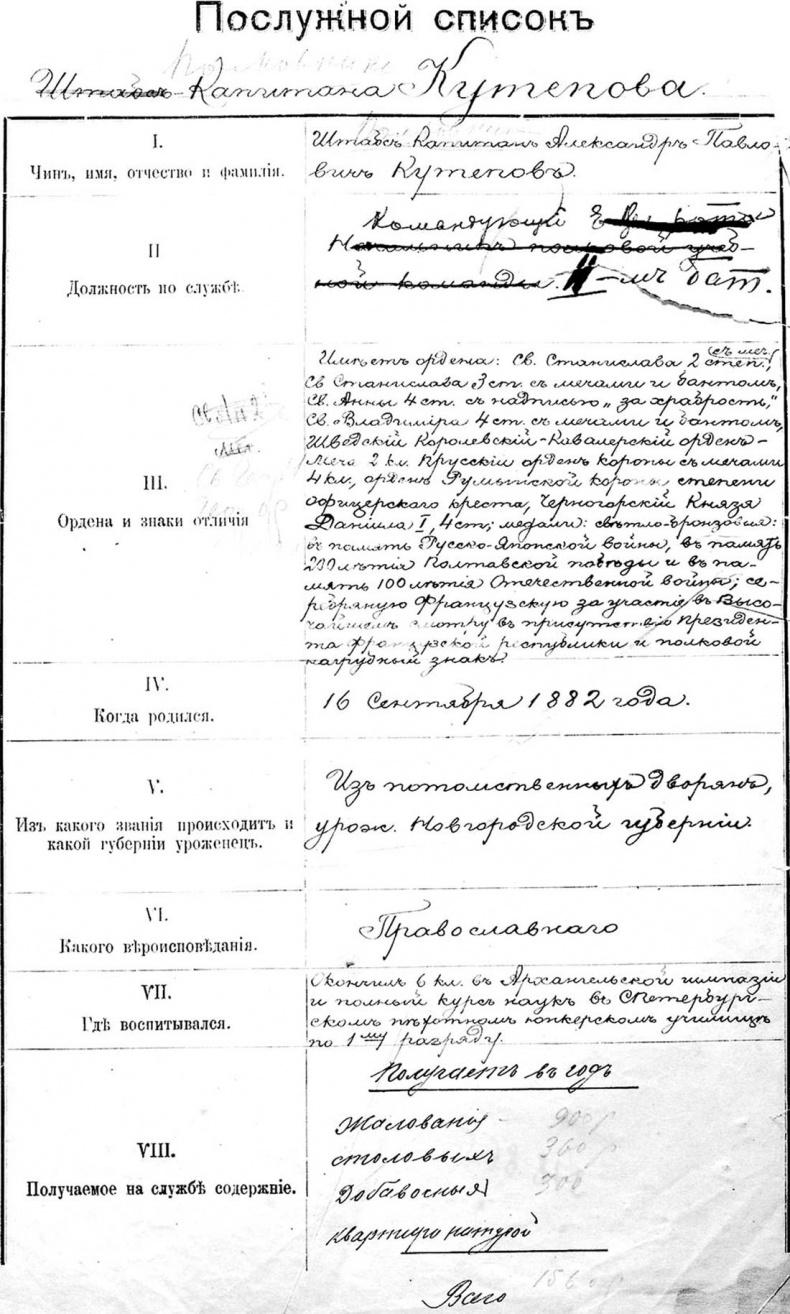 Послужной списокъ
Полковника
Штабсъ-Капитана Кутепова.
I.
Чинъ, имя, отчество и фамилія.
Штабсъ Капитанъ Александръ Павло-
вичъ Кутеповъ.
II
Должность по службѣ
Командующій ротой
Начальникъ полковой учеб-
ной команды. II-мъ бат.
III.
Ордена и знаки отличія
Имѣетъ ордена: Св. Станислава 2 степ. съ меч.,
Св Станислава 3 ст. съ мечами и бантомъ,
Св. Анны 4 ст. съ надписью „за храбрость,"
Св. Владиміра 4 ст. съ мечами и бантомъ,
Шведскій Королевскій-Кавалерскій орденъ-
Меча 2 кл. Прусскій орденъ короны съ мечами
4 кл., орденъ Румынской короны степени
офицерскаго креста, Черногорскій Князя
Даніила I, 4 ст; медали: свѣтло-бронзовыя:
въ память Русско-Японской войны, въ память
200 лѣтія Полтавской побѣды и въ па-
мять 100 лѣтія Отечественной войны; се-
ребряную Французскую за участіе въ Высо-
чайшемъ смотру въ присутствіи Президен-
та Французской республики и полковой
нагрудный знакъ.
IV.
Когда родился.
16 Сентября 1882 года.
V.
Изъ какого званія происходитъ и
какой губерніи уроженецъ.
Изъ потомственныхъ дворянъ,
урож. Новгородской губерніи.
VI.
Какого вѣроисповѣданія.
Православнаго
VII.
Гдѣ воспитывался.
Окончилъ 6 кл. въ Архангельской гимназіи
и полный курсъ наукъ въ СПетербург-
скомъ пѣхотномъ юнкерскомъ училищѣ
по 1му разряду.
VIII.
Получаемое на службѣ содержніе.
Получаетъ въ годъ
Жалованія - 900 р
столовыхъ 360 р
Добавочныя 300
квартира натурой
Всего 1560 р